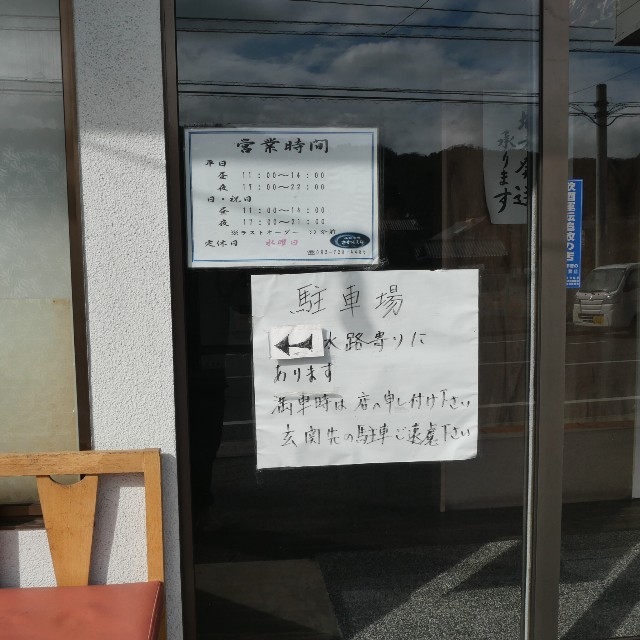 営業時間
平日
昼 11:00〜14:00
夜 17:00〜22:00
日・祝日
昼 11:00〜14:00
夜 17:00〜21:00
※ラストオーダー 30分前
定休日 水曜日
駐車場
水路寄りに
あります
満車時は店へ申し付け下さい
玄関先の駐車ご遠慮下さい
承ります